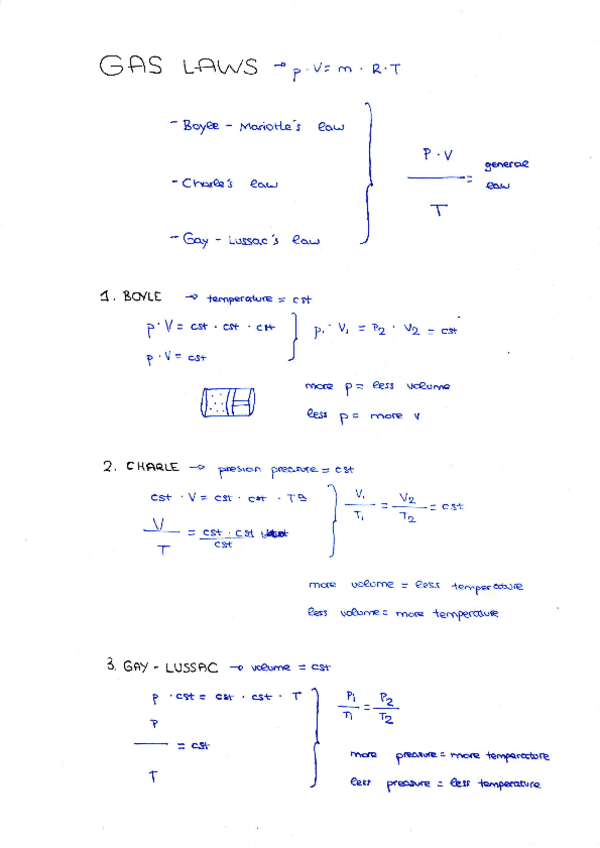 GAS LAWS → p · V = m · R · T
- Boyle - Mariotte's law
- Charle's law
- Gay - Lussac's law
P · V / T = general law
1. BOYLE → temperature = cst
p · V = cst · cst · cst
p · V = cst
p1 · V1 = P2 · V2 = cst
more p = less volume
less p = more v
2. CHARLE → presion preasure = cst
cst · V = cst · cst · Tª
V / T = cst · cst / cst
V1 / T1 = V2 / T2 = cst
more volume = less temperature
less volume = more temperature
3. GAY - LUSSAC → volume = cst
p · cst = cst · cst · T
P / T = cst
P1 / T1 = P2 / T2
more preasure = more temperature
less preasure = less temperature